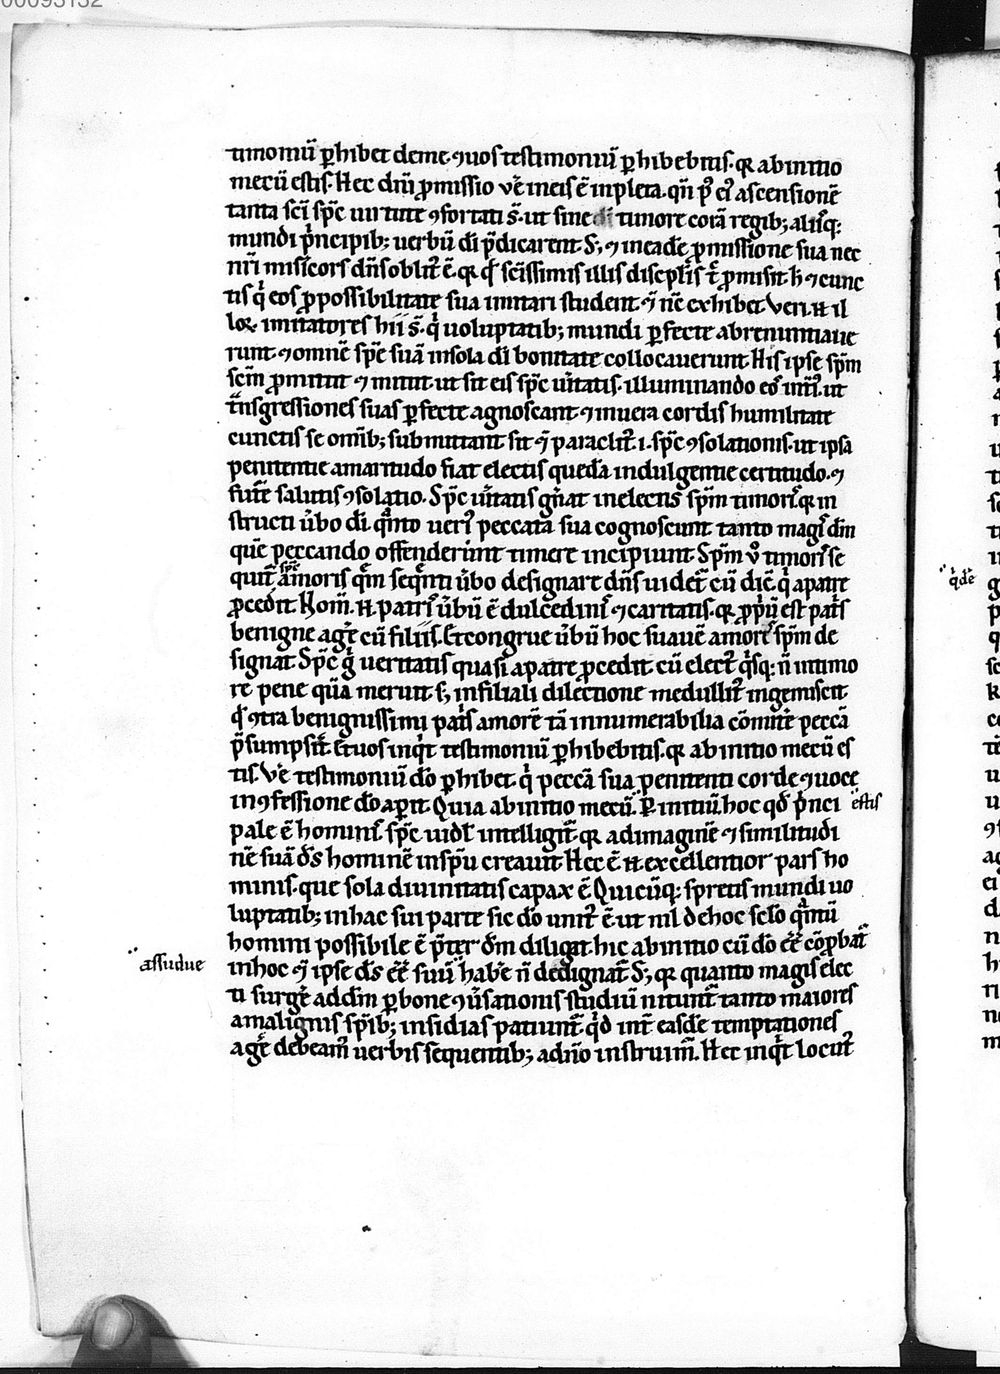 00093132
timoniū ꝑhibet de me. ⁊ uos testimoniū ꝑhibebitis. qꝛ ab initio
mecū estis. Hec dīni ꝓmissio ue᷑ in eis ē inpleta. qn̄ pꝰ eiꝰ ascensionē
tanta sc̄i sp̄c uirtute ꝯfortati s̄. ut sine timore corā regib; aliisq:
mundi pͥncipib; uerbū di p̄dicarent. S; ⁊ in eadē ꝓmissione sua nec
nr̄i misicors dn̄s oblitꝰ ē. qꝛ qd̓ sc̄issimis illis discplīs t̄c ꝓmisit. h̓ ⁊ cunc
tis qͥ eos ꝓ possibilitate sua imitari student. ⁊ nc̄ exhibet. Veri. n̄ il
loꝝ imitatores hii s̄. qͥ uoluptatib; mundi ꝑfecte abrenuntiaue
runt. ⁊ omnē spē suā in sola di bonitate collocauerunt. His ipse sp̄m
sc̄m ꝓmittit ⁊ mittit. ut sit eis sp̄c ūitatis. illuminando eos int̓iꝰ. ut
tͣnsgressiones suas ꝑfecte agnoscant. ⁊ in uera cordis humilitate
cunctis se omīb; submittant. sit ⁊ paraclitꝰ. i. sp̄c ꝯsolationis. ut ipsa
penitentie amaritudo fiat electis quedā indulgentie certitudo. ⁊
future᷑ salutis ꝯsolatio. Sp̄c ūitatis gn̄at in electis sp̄m timoris. qꝛ in
structi ūbo di. qͣnto ueriꝰ peccata sua cognoscunt. tanto magis dm̄
quē peccando offenderunt timere incipiunt. Sp̄m ū timoris se
quit᷑ sp̄c amoris. qͣm seqn̄ti ūbo designare dn̄s uidet᷑ cū dic̄. qͥ a patre
ꝓcedit. Nom̄. n̄. patris ūbū ē dulcedinis ⁊ caritatis. qꝛ ꝓpͥū est pat̓s
benigne age᷑ cū filiis. Et congrue ūbū hoc suauē amoris sp̄m de
signat. Sp̄c g̓ ueritatis quasi a patre ꝓcedit. cū electꝰ qͥsq: n̄ timo
re pene quā meruit s; in filiali dilectione medullitꝰ ingemiscit.
qd̓ ꝯtra benignissimi pat̓s amorē tā innumerabilia cōmitte᷑ peccā
p̄sumpsit. Et uos inqͥt testimoniū ꝑhibebitis. qꝛ ab initio mecū es
tis. Ve᷑ testimoniū do ꝑhibet. qͥ peccā sua penitenti corde ⁊ uoce
in ꝯfessione do ap̓it. Quia ab initio mecū. Per initiū hoc qd̓ pͥnci estis
pale ē hominis sp̄c uidl̓ intelligit᷑. qꝛ ad imaginē ⁊ similitudi
nē suā ds̄ hominē in sp̄u creauit. Hec ē. n̄. excellentior pars ho
minis. que sola diuinitatis capax ē. Quicūq: spretis mundi uo
luptatib; in hac sui parte sic do unitꝰ ē. ut nil̓ de hoc sclo qͣntū
homini possibile ē p̄ter dm̄ diligat. hic ab initio cū do ēē cōprobat᷑
assidue
in hoc ⁊ ipse ds̄ ēē suū habe᷑ n̄ dedignat᷑. S; qꝛ quanto magis elec
ti surge᷑ ad dm̄ ꝑ bone ꝯūsationis studiū nitunt᷑. tanto maiores
a malignis sp̄ib; insidias patiunt᷑. qͥd int̓ easdē temptationes
age᷑ debeam̄ uerbis sequentib; a dn̄o instruim̄. Hec inqͥt locutꝰ
qͥdē